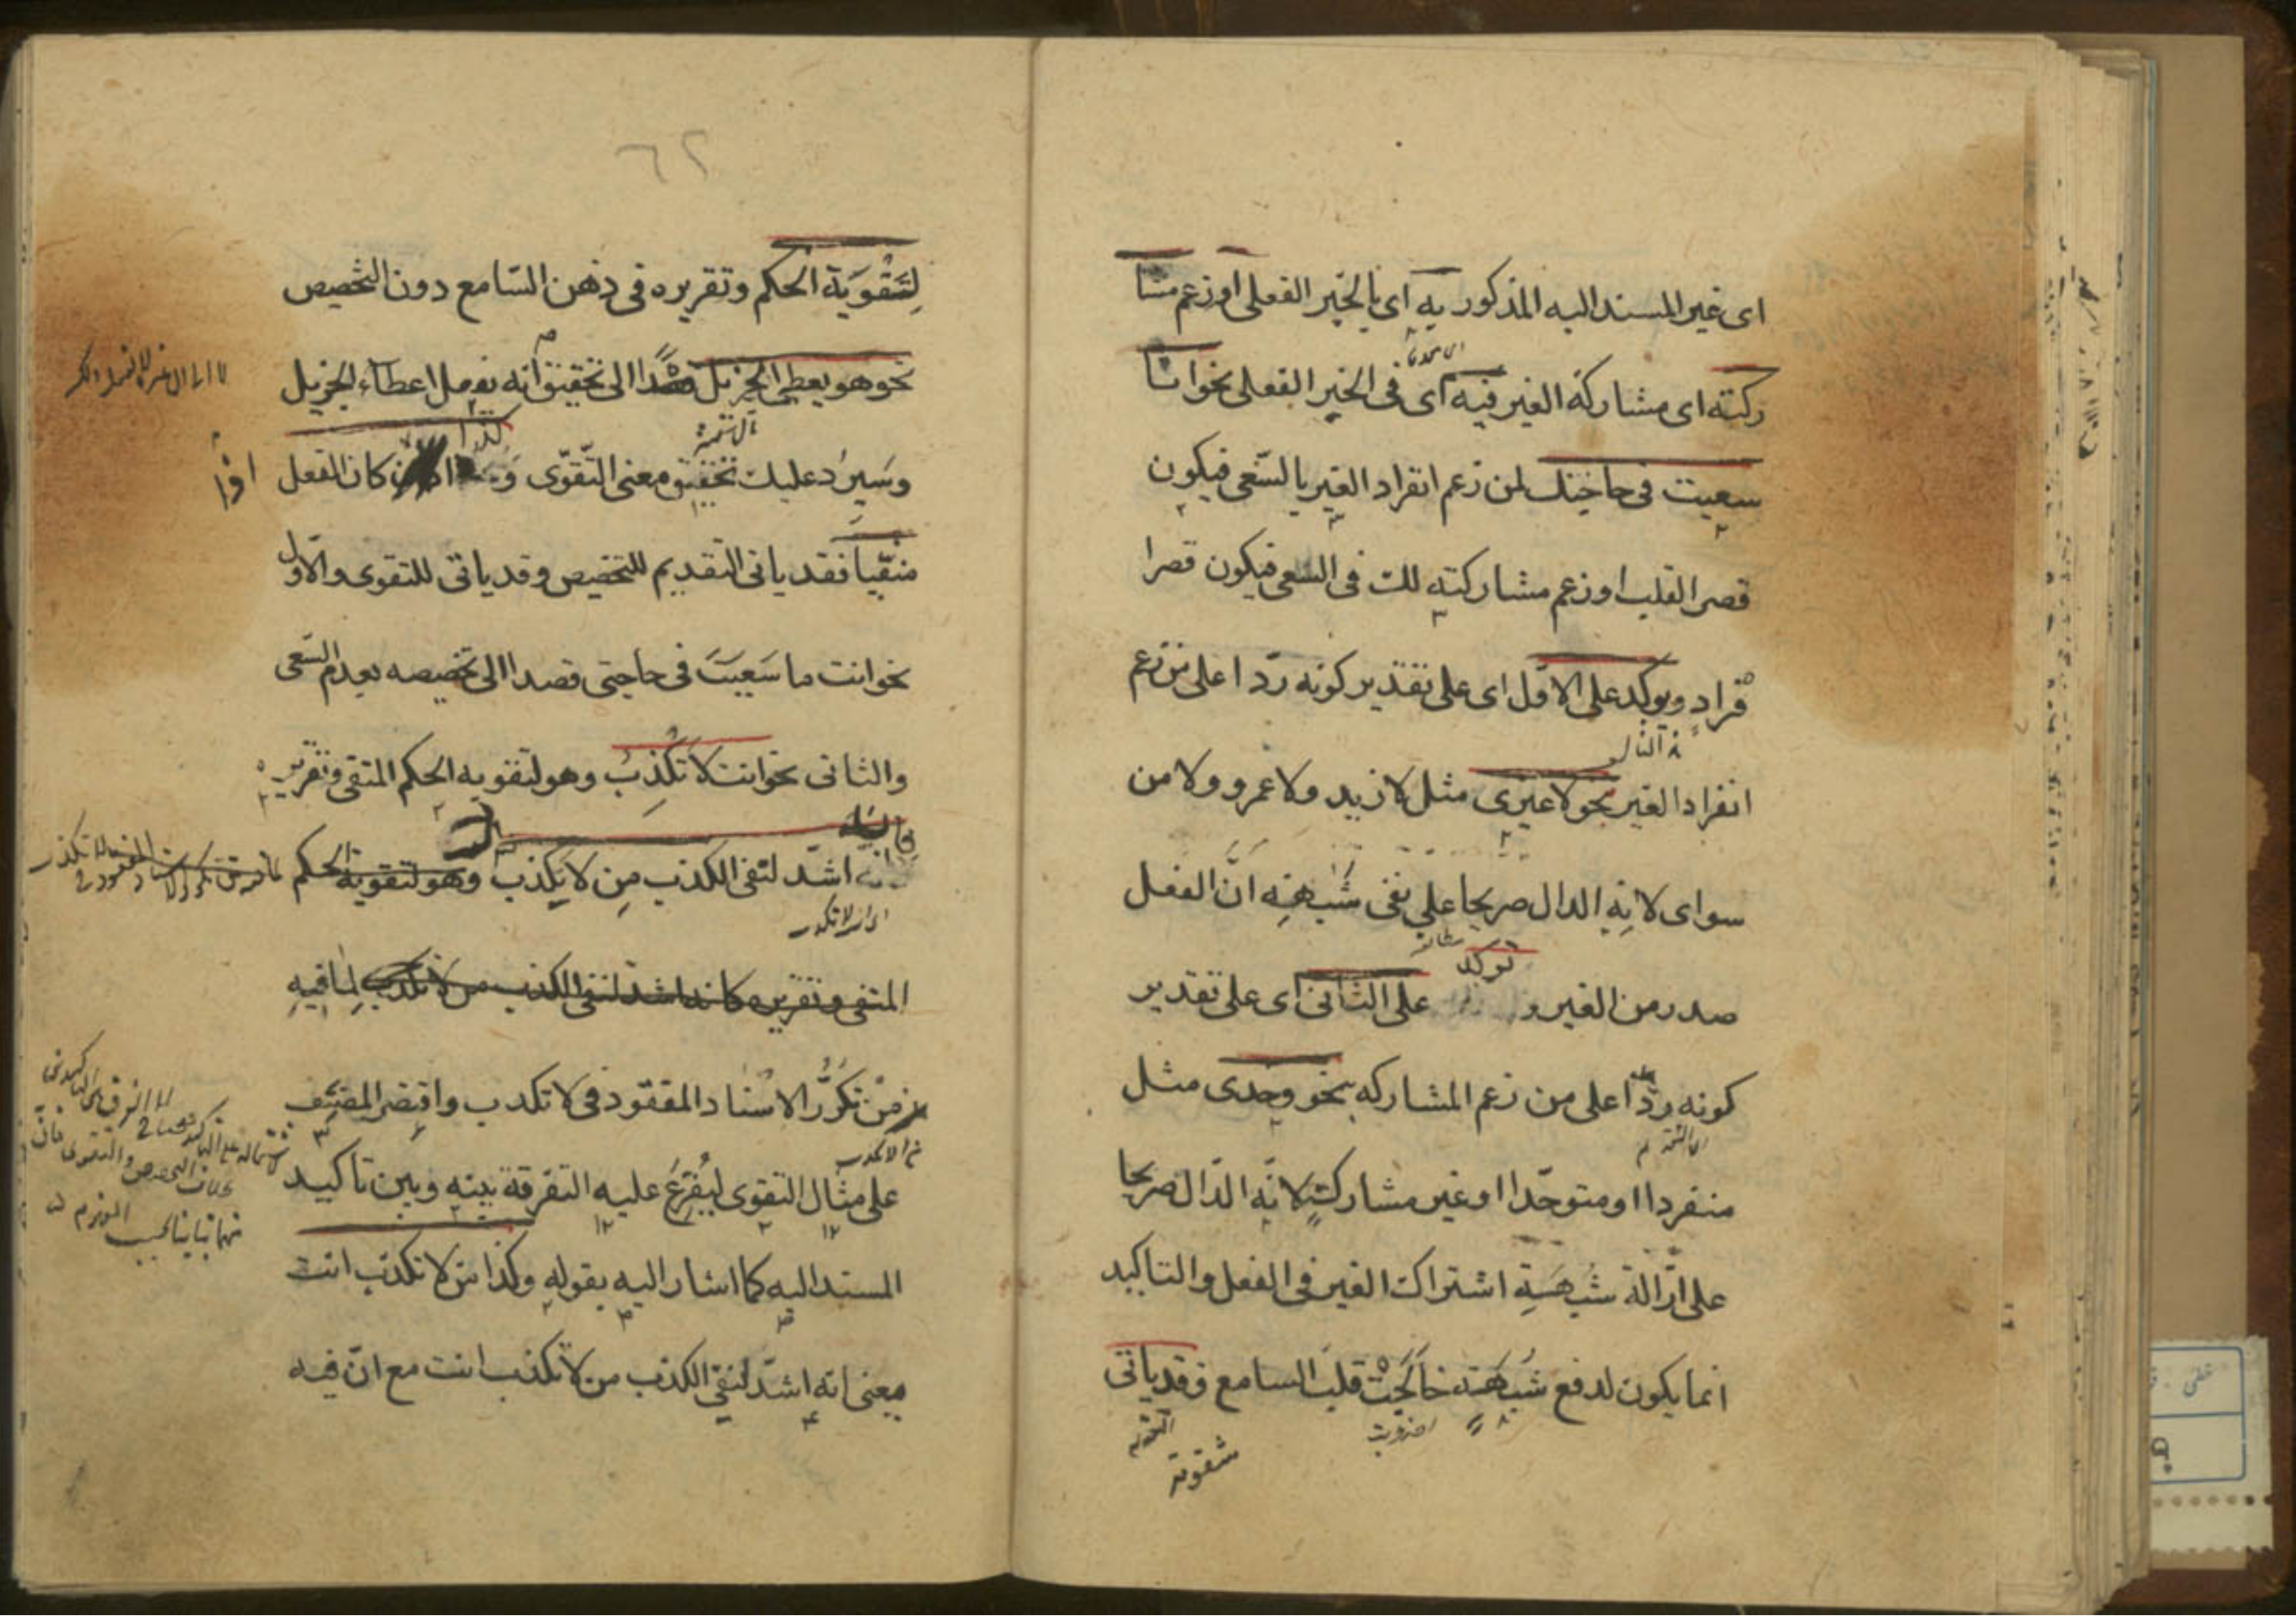 اى غير المسند اليه المذكور به اى بالخبر الفعلى او زعم مشا
ركته اى مشاركة الغير فيه اى فى الخبر الفعلى نحو انا
سعيت فى حاجتك لمن زعم انفراد الغير بالسّعى فيكون
قصر القلب او زعم مشاركته لك فى السعى فيكون قصرا
فراد ويؤكد على الاوّل اى على تقدير كونه ردّا على من زعم
انفراد الغير بنحو لا غيرى مثل لا زيد ولا عمرو ولا من
سواى لانه الدال صريحا على نفى شبهة انّ الفعل
توكد
صدر من الغير و على الثانى اى على تقدير
كونه ردّا على من زعم المشاركه بنحو وحدى مثل
منفردا او متوحّدا او غير مشارك لانّه الدّال صريحا
على ازالة شبهة اشتراك الغير فى الفعل والتاكيد
انما يكون لدفع شبهة خالجت قلب السامع وقد ياتى
لتقوية
٦٢
لِتَقْوَيَة الحكم وتقريره فى ذهن السّامع دون التخصيص
نحو هو يعطى الجزيل قصدا الى تحقيق انه يفعل اعطاء الجزيل
وسَيَرد عليك تحقيق معنى التّقوّى وَ كذا اذا كان الفعل
منفيّا فقد ياتى التقديم للتخصيص وقد ياتى للتقوى والاوّل
نحو انت ما سَعيتَ فى حاجتى قصدا الى تخصيصه بعدم السّعى
والثانى نحو انت لا تكْذِبُ وهو لتقويه الحكم المنفى وتقريره
فانه اشدّ لنفى الكذب مِن لا تكذب وهو لتقوية الحكم
المنفى وتقريره فانه اشد لنفى الكذب من لا تكذب لما فيه
من تكَرُّر الاسناد المفقود فى لا تكذب واقتصر المصنّف
على مثال التقوى ليُفَرّعَ عليه التفرقة بينه وبين تاكيد
المسند اليه كما اشار اليه بقوله وكذا من لا تكذب انت
يعنى انه اشدّ لنفى الكذب من لا تكذب انت مع انّ فيه